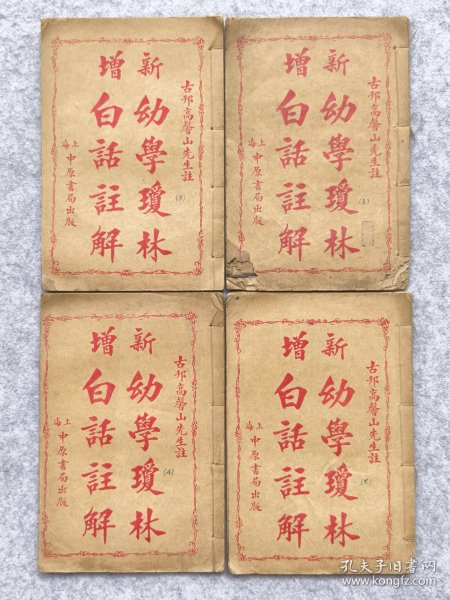 古邗高馨山先生註
新增
幼學瓊林
白話註解
上海中原書局出版
(3)
古邗高馨山先生註
新增
幼學瓊林
白話註解
上海中原書局出版
(1)
古邗高馨山先生註
新增
幼學瓊林
白話註解
上海中原書局出版
(4)
古邗高馨山先生註
新增
幼學瓊林
白話註解
上海中原書局出版
孔夫子旧书网
www.kongfz.com